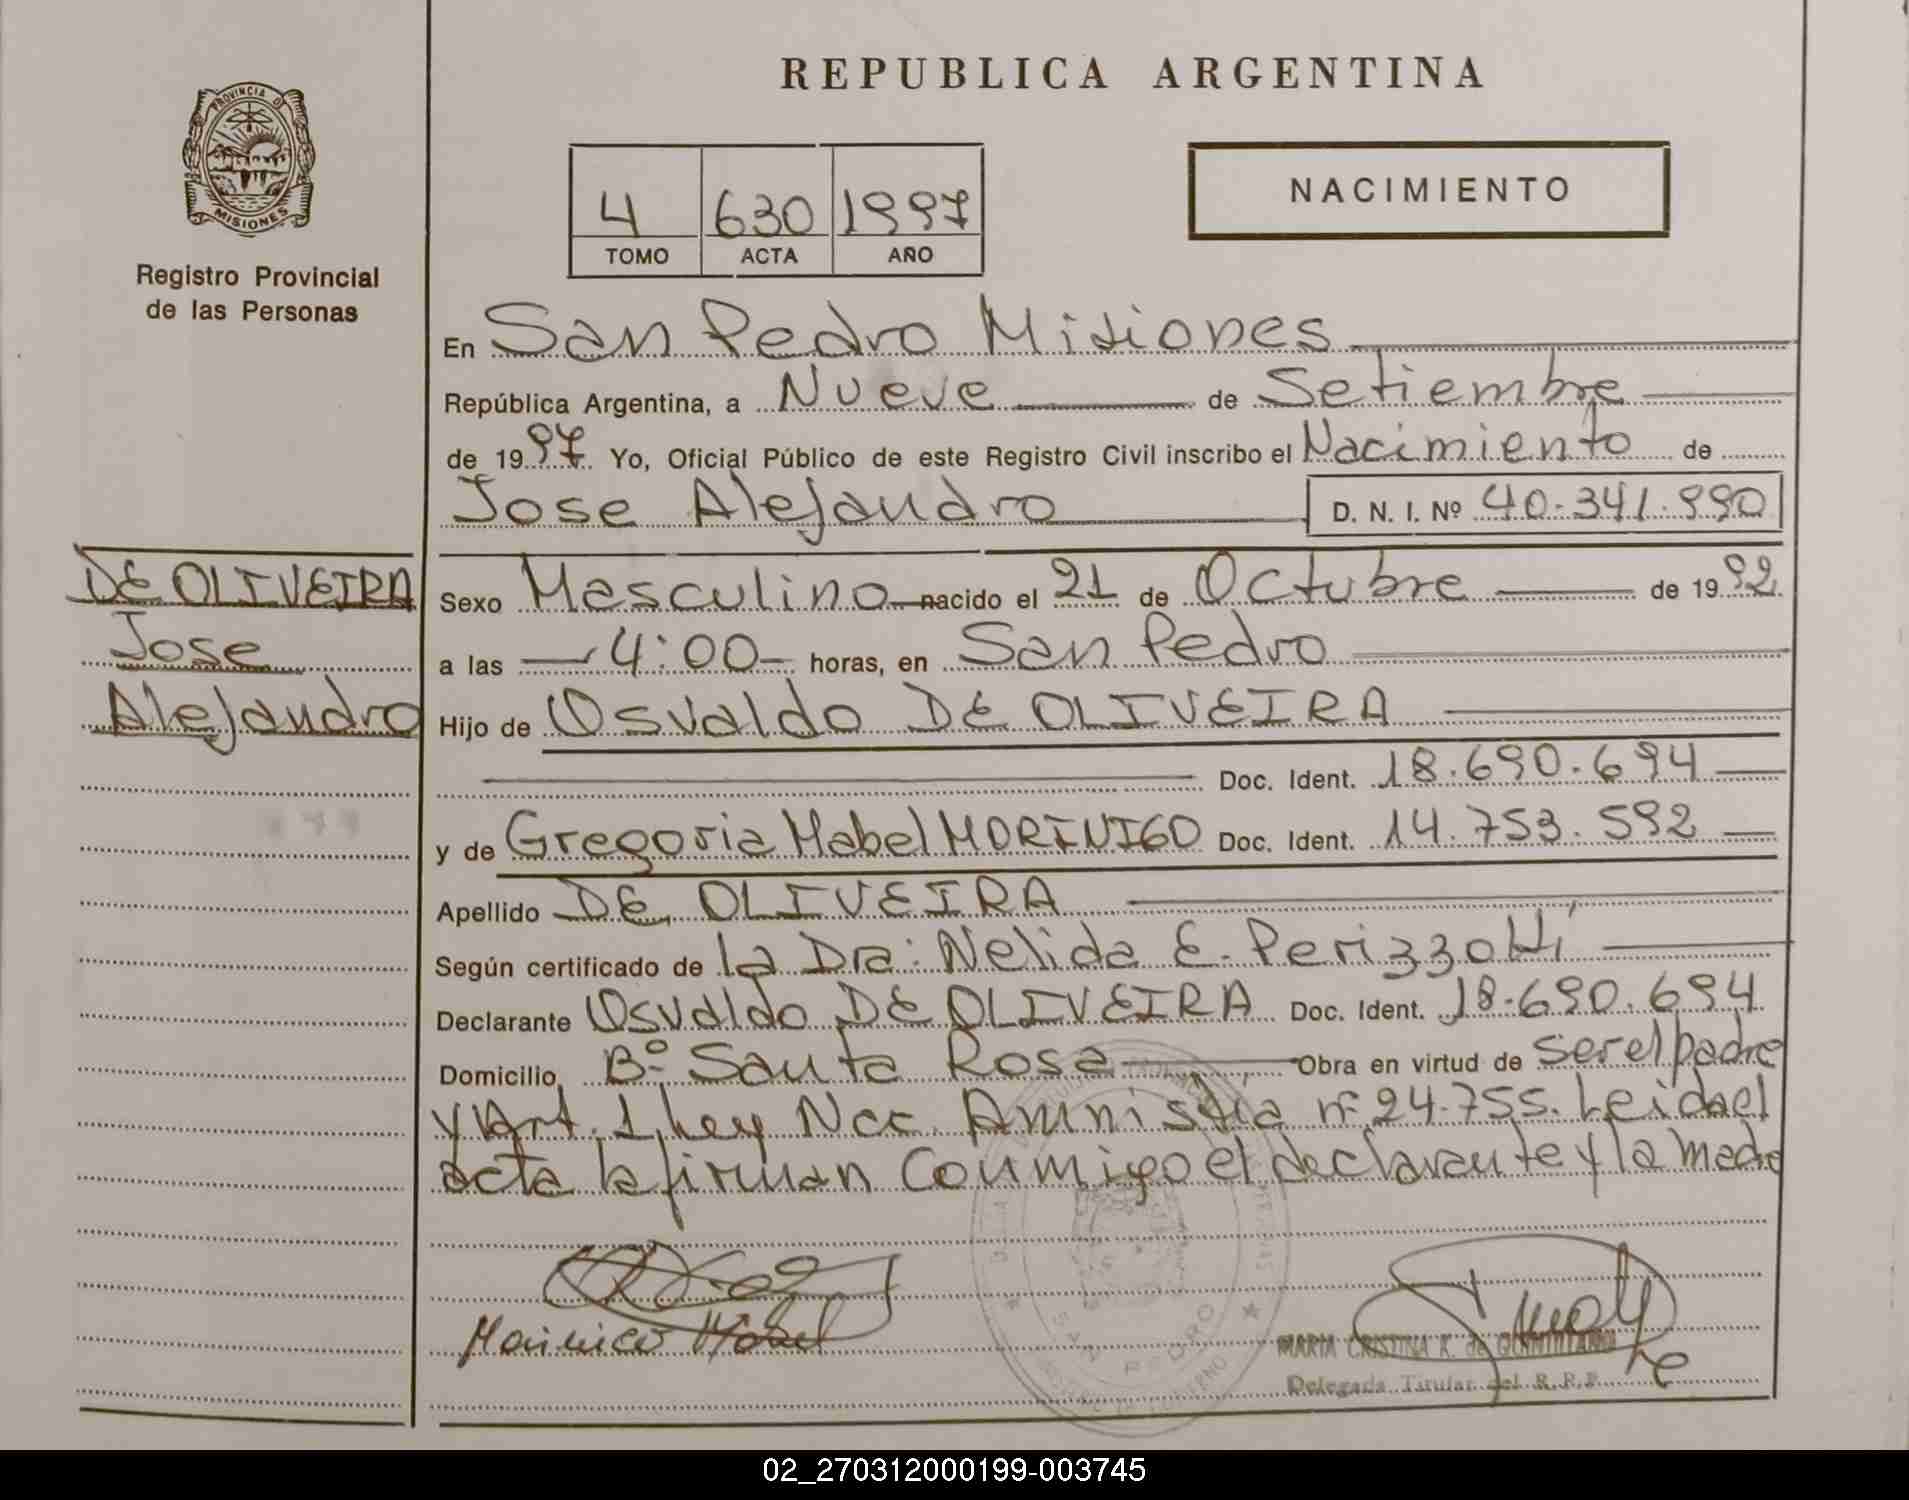 REPUBLICA ARGENTINA
PROVINCIA D
MISIONES
Registro Provincial
de las Personas
4 630 1997
TOMO ACTA AÑO
NACIMIENTO
En San Pedro Misiones
República Argentina, a Nueve de Setiembre
de 1997 Yo, Oficial Público de este Registro Civil inscribo el Nacimiento de
Jose Alejandro D. N. I. Nº 40.341.990
DE OLIVEIRA
Jose
Alejandro
Sexo Masculino nacido el 21 de Octubre de 1992
a las 4:00 horas, en San Pedro
Hijo de Osvaldo DE OLIVEIRA
Doc. Ident. 18.690.694
y de Gregoria Mabel MORINIGO Doc. Ident. 14.753.592
Apellido DE OLIVEIRA
Según certificado de la Dra: Nelida E.
Declarante Osvaldo DE OLIVEIRA Doc. Ident. 18.690.694
Domicilio Bº Santa Rosa Obra en virtud de ser el padre
y Art. 1 Ley Nac. Amnistia nº 24.755. Leida el
acta la firman conmigo el declarante y la madre
SAN PEDRO
MARIA CRISTINA K. de QUINTITANO
Delegada Titular del R.P.P.
02_270312000199-003745